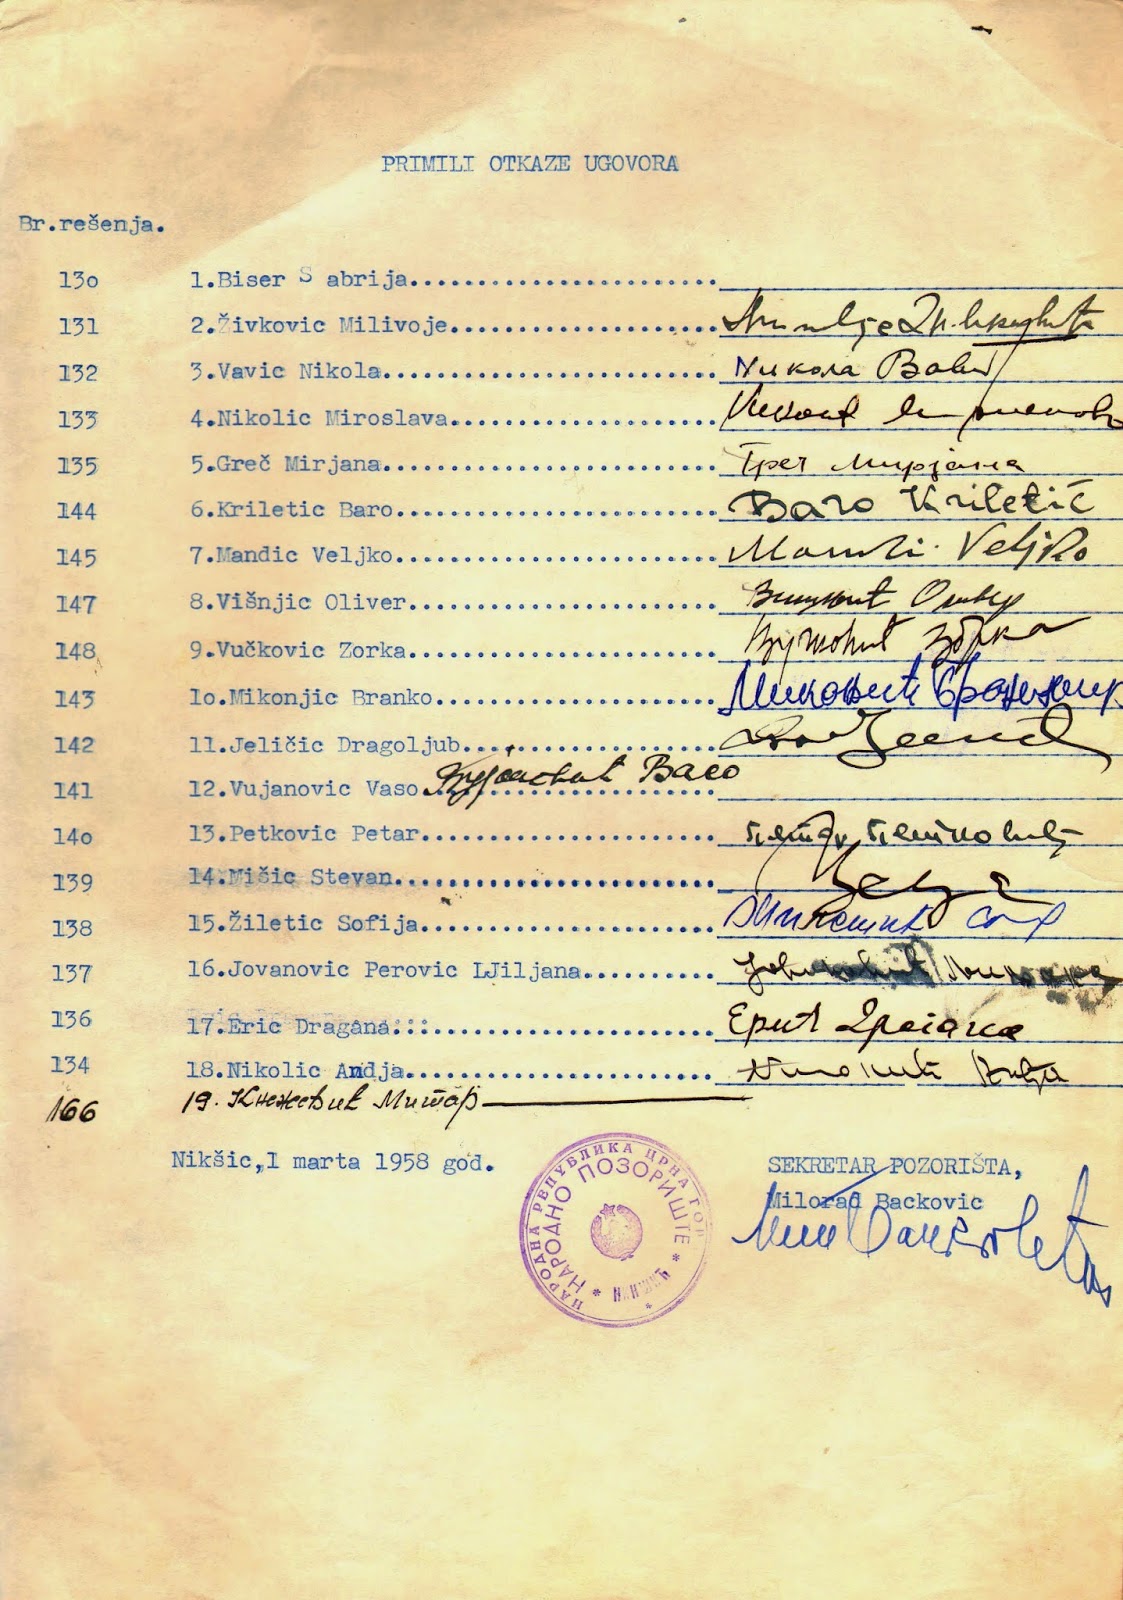 PRIMILI OTKAZE UGOVORA
Br.rešenja.
13o 1.Biser S abrija........................
131 2.Živkovic Milivoje....................
132 3.Vavic Nikola......................... Никола Вавић
133 4.Nikolic Miroslava....................
135 5.Greč Mirjana......................... Греч Мирјана
144 6.Kriletic Baro........................ Baro Kriletić
145 7.Mandic Veljko........................ Mandić Veljko
147 8.Višnjic Oliver....................... Вишњић Оливер
148 9.Vučkovic Zorka....................... Вучковић Зорка
143 1o.Mikonjic Branko.....................
142 11.Jeličic Dragoljub...................
141 12.Vujanovic Vaso...................... Вујановић Васо
14o 13.Petkovic Petar...................... Петар Петковић
139 14.Mišic Stevan........................
138 15.Žiletic Sofija......................
137 16.Jovanovic Perovic LJiljana..........
136 17.Eric Dragana:::..................... Ерић Драгана
134 18.Nikolic Andja.......................
166 19. Кнежевић Митар
Nikšic,1 marta 1958 god.
SEKRETAR POZORIŠTA,
Milorad Backovic
НАРОДНА РЕПУБЛИКА ЦРНА ГОР
НАРОДНО ПОЗОРИШТЕ
* НИКШИЋ *